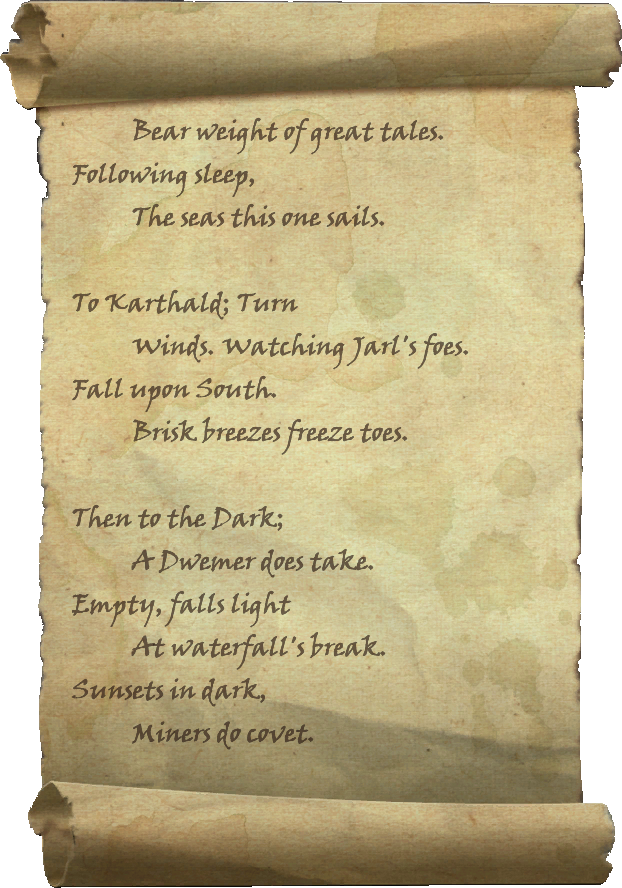 Bear weight of great tales.
Following sleep,
The seas this one sails.
To Karthald; Turn
Winds. Watching Jarl's foes.
Fall upon South.
Brisk breezes freeze toes.
Then to the Dark;
A Dwemer does take.
Empty, falls light
At waterfall's break.
Sunsets in dark,
Miners do covet.